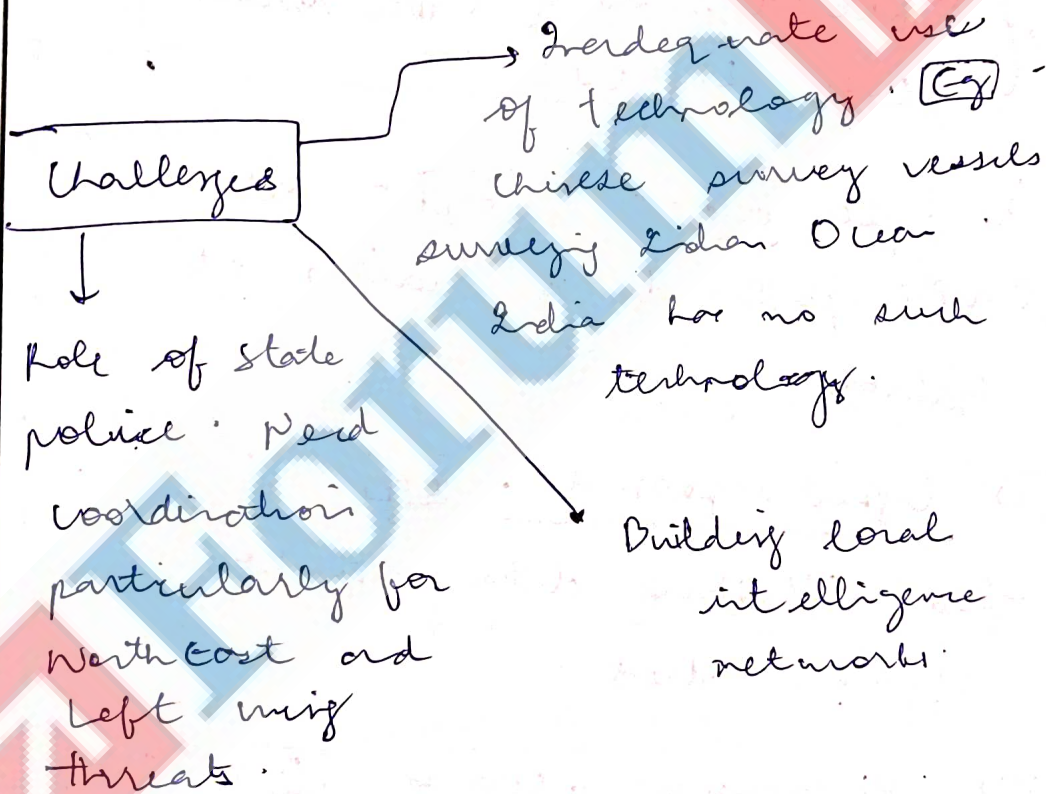 Challenges
Inadequate use
of technology. Eg -
Chinese survey vessels
surveying Indian Ocean.
India has no such
technology.
Role of state
police. Need
coordination
particularly for
North East and
Left wing
threats.
Building local
intelligence
networks.
Forum